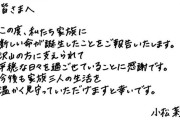 皆さまへ
この度、私たち家族に
新しい命が誕生したことをご報告いたします。
沢山の方に支えられて
平穏な日々を過ごせていることに感謝です。
今後も家族三人の生活を
温かく見守っていただけますと幸いです。
小松菜